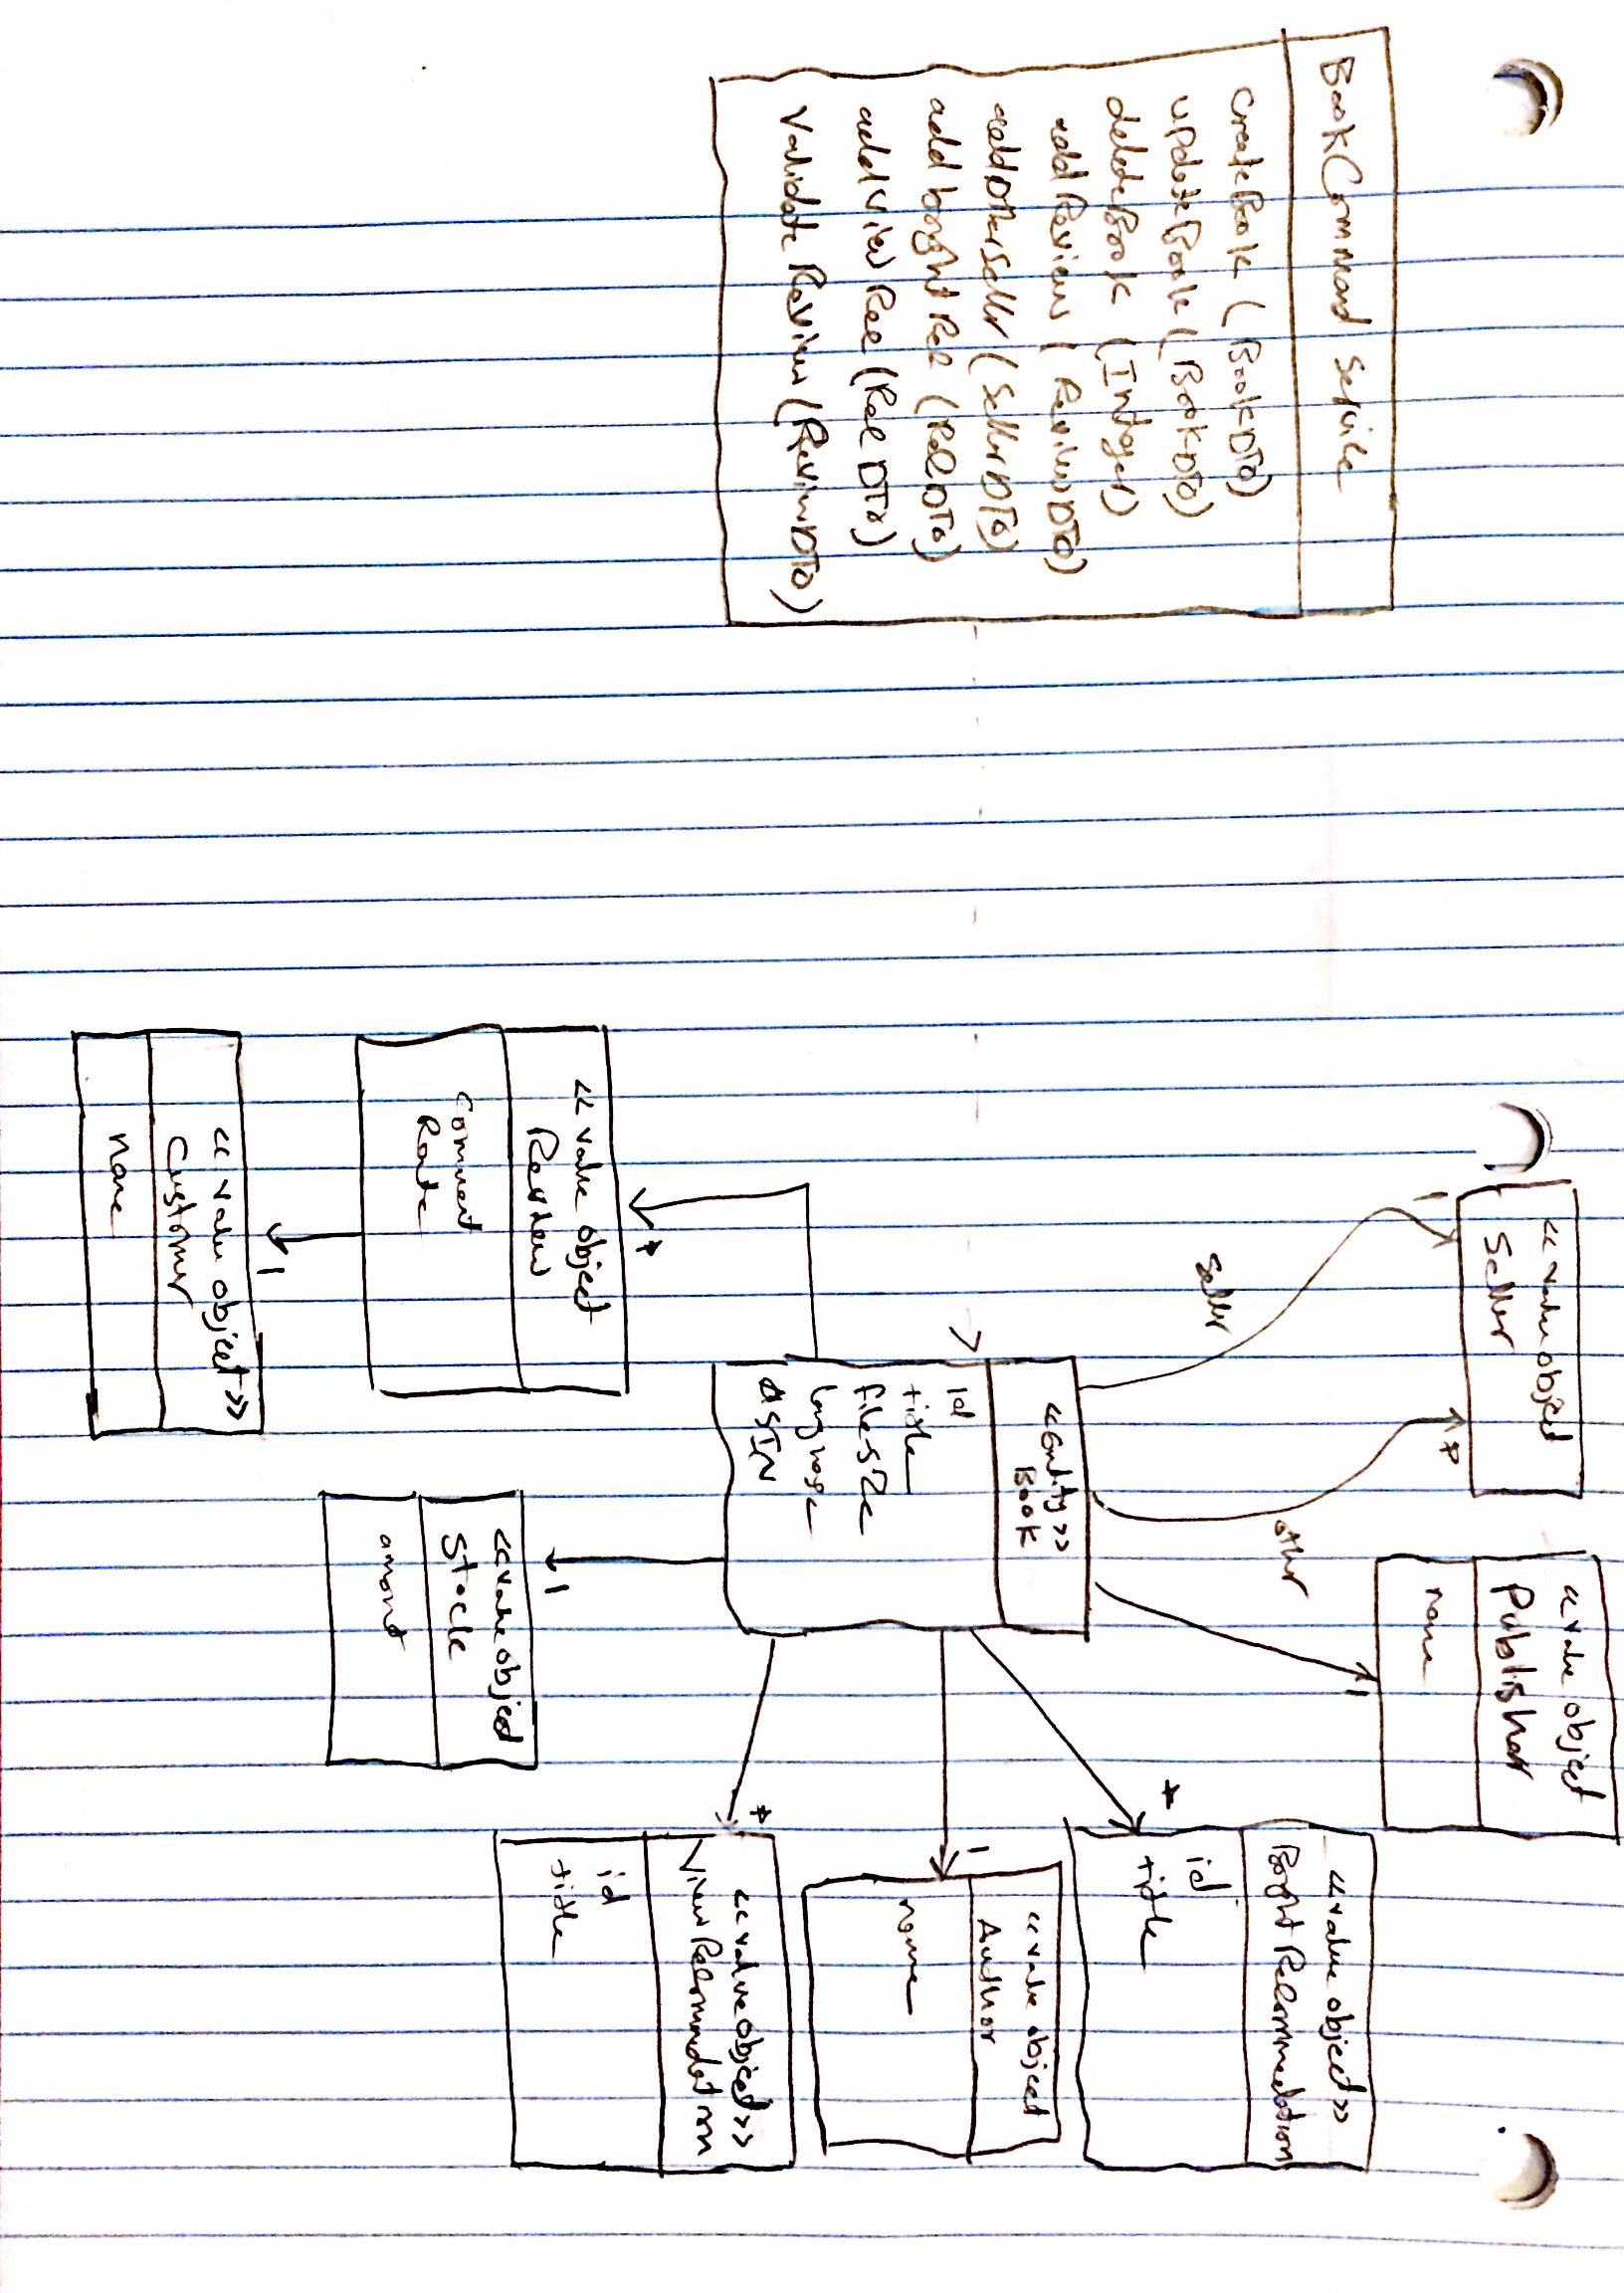 BookCommand Service
createBook ( BookDTO)
updateBook ( BookDTO)
deleteBook (Integer)
addReview ( ReviewDTO)
addOtherSeller (SellerDTO)
add boughtRec (RecDTO)
addViewRec (RecDTO)
ValidateReview (ReviewDTO)
<< value object
Seller
1
*
<<value object
Publisher
name
1
seller
other
<<value object>>
BoughtRecommedation
id
title
*
<<Entity>>
Book
id
title
filesize
language
ASIN
<<value object
Author
name
1
<<value object>>
ViewRecommedation
id
title
*
*
<< value object
Review
comment
Rate
1
<<value object
stock
amont
1
<< value object>>
Customer
name